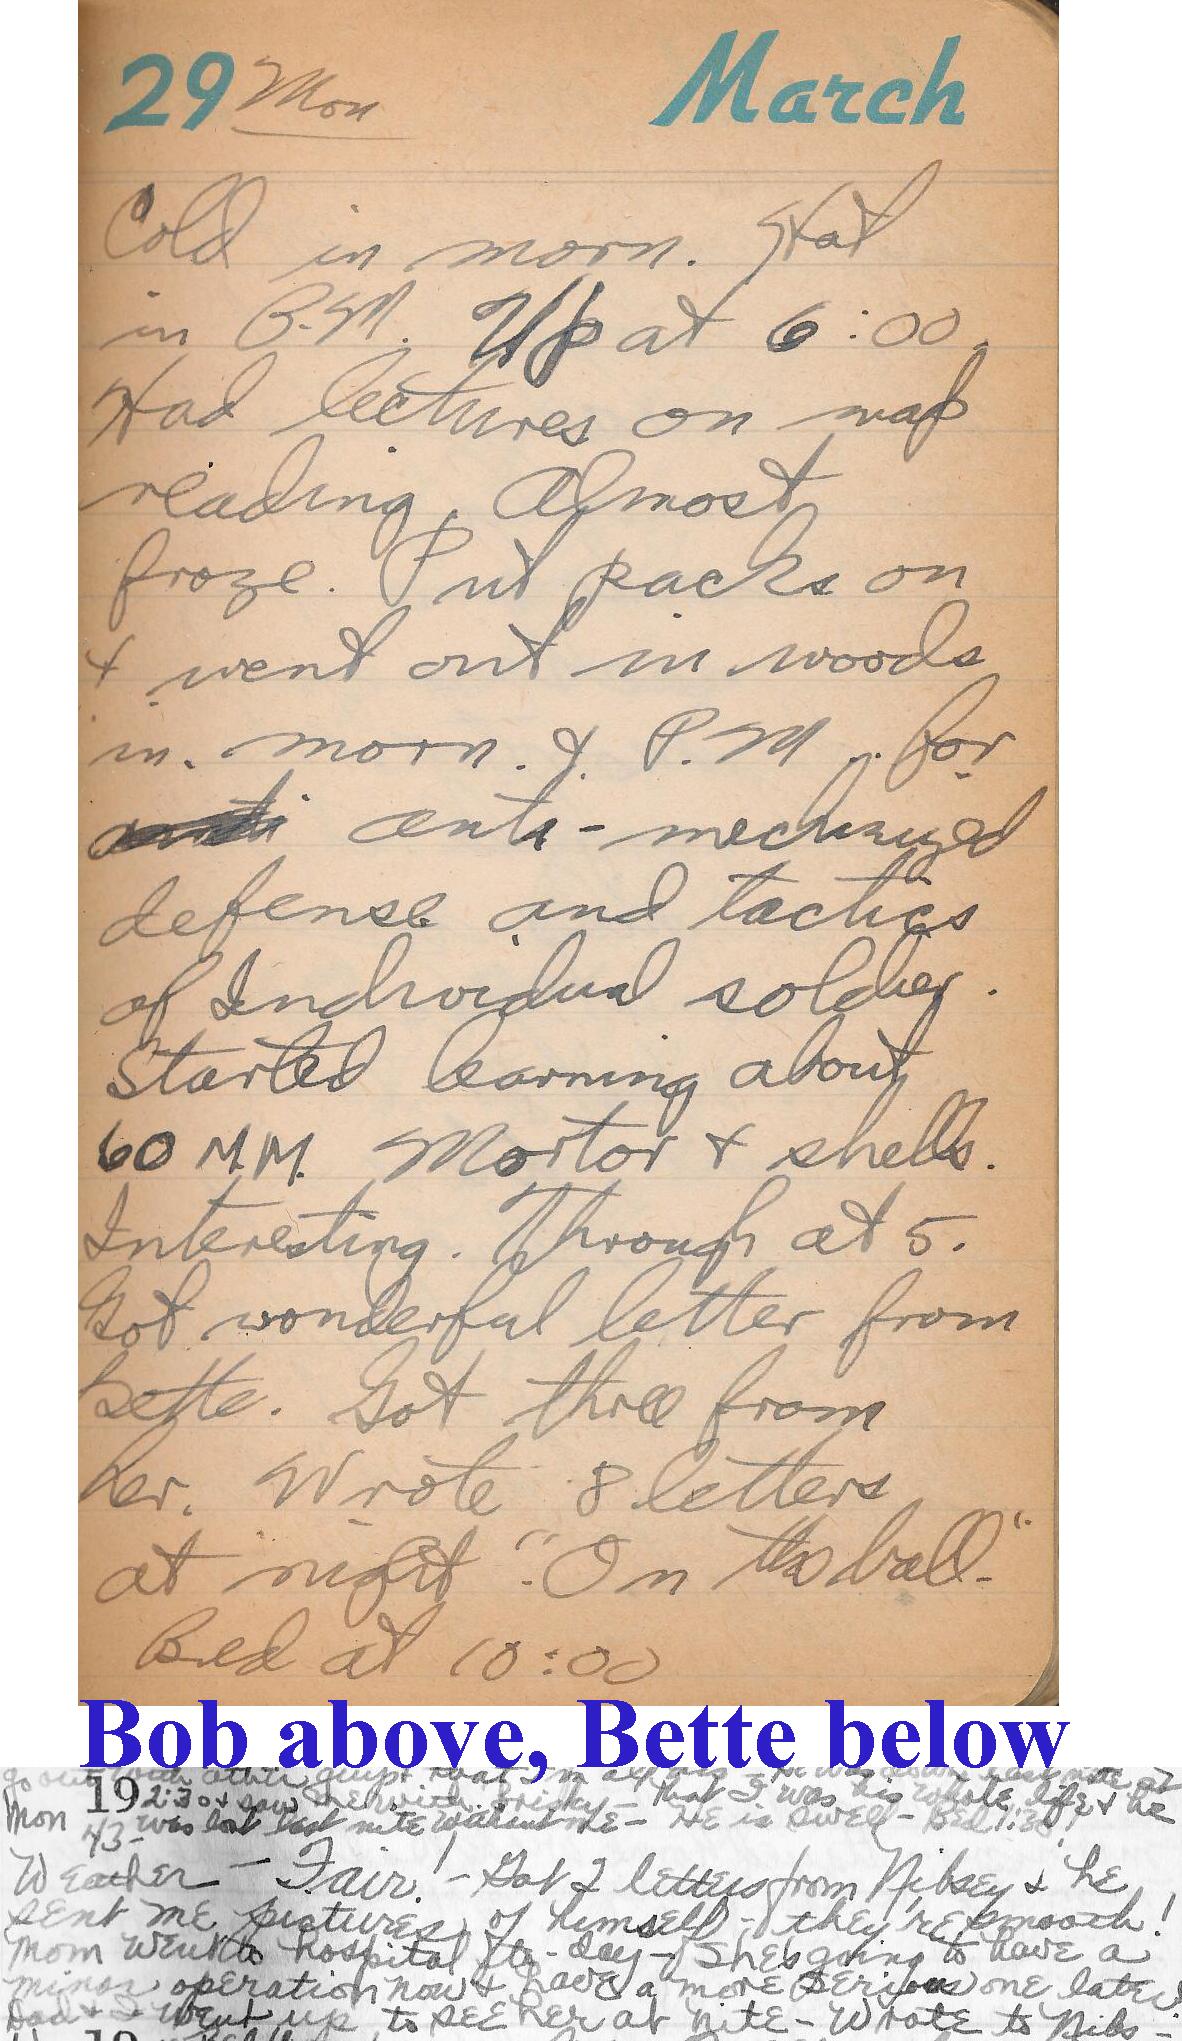 29 Mon March
Cold in morn. Hot
in P.M. Up at 6:00.
Had lectures on map
reading. Almost
froze. Put packs on
& went out in woods
in morn. & P.M. for
anti anti-mechnized
defense and tactics
of Individual soldier.
Started learning about
60 M.M. Mortor & shells.
Interesting. Through at 5.
Got wonderful letter from
Bette. Got three from
her. Wrote 8 letters
at night "On the ball"
Bed at 10:00
Bob above, Bette below
go out with other guys & that I'm all his - He was down last nite at
19 2:30 & saw me with Frisky - that I was his whole life & he
Mon 43- was lost last nite without me - HE is swell - Bed 1:30!
Weather - Fair! - Got 2 letters from Nibsey & he
sent me pictures of himself - they're smooth!
Mom went to hospital to-day - She's going to have a
minor operation now & have a more serious one later!
Dad & I went up to see her at nite - Wrote to Nibs -
19